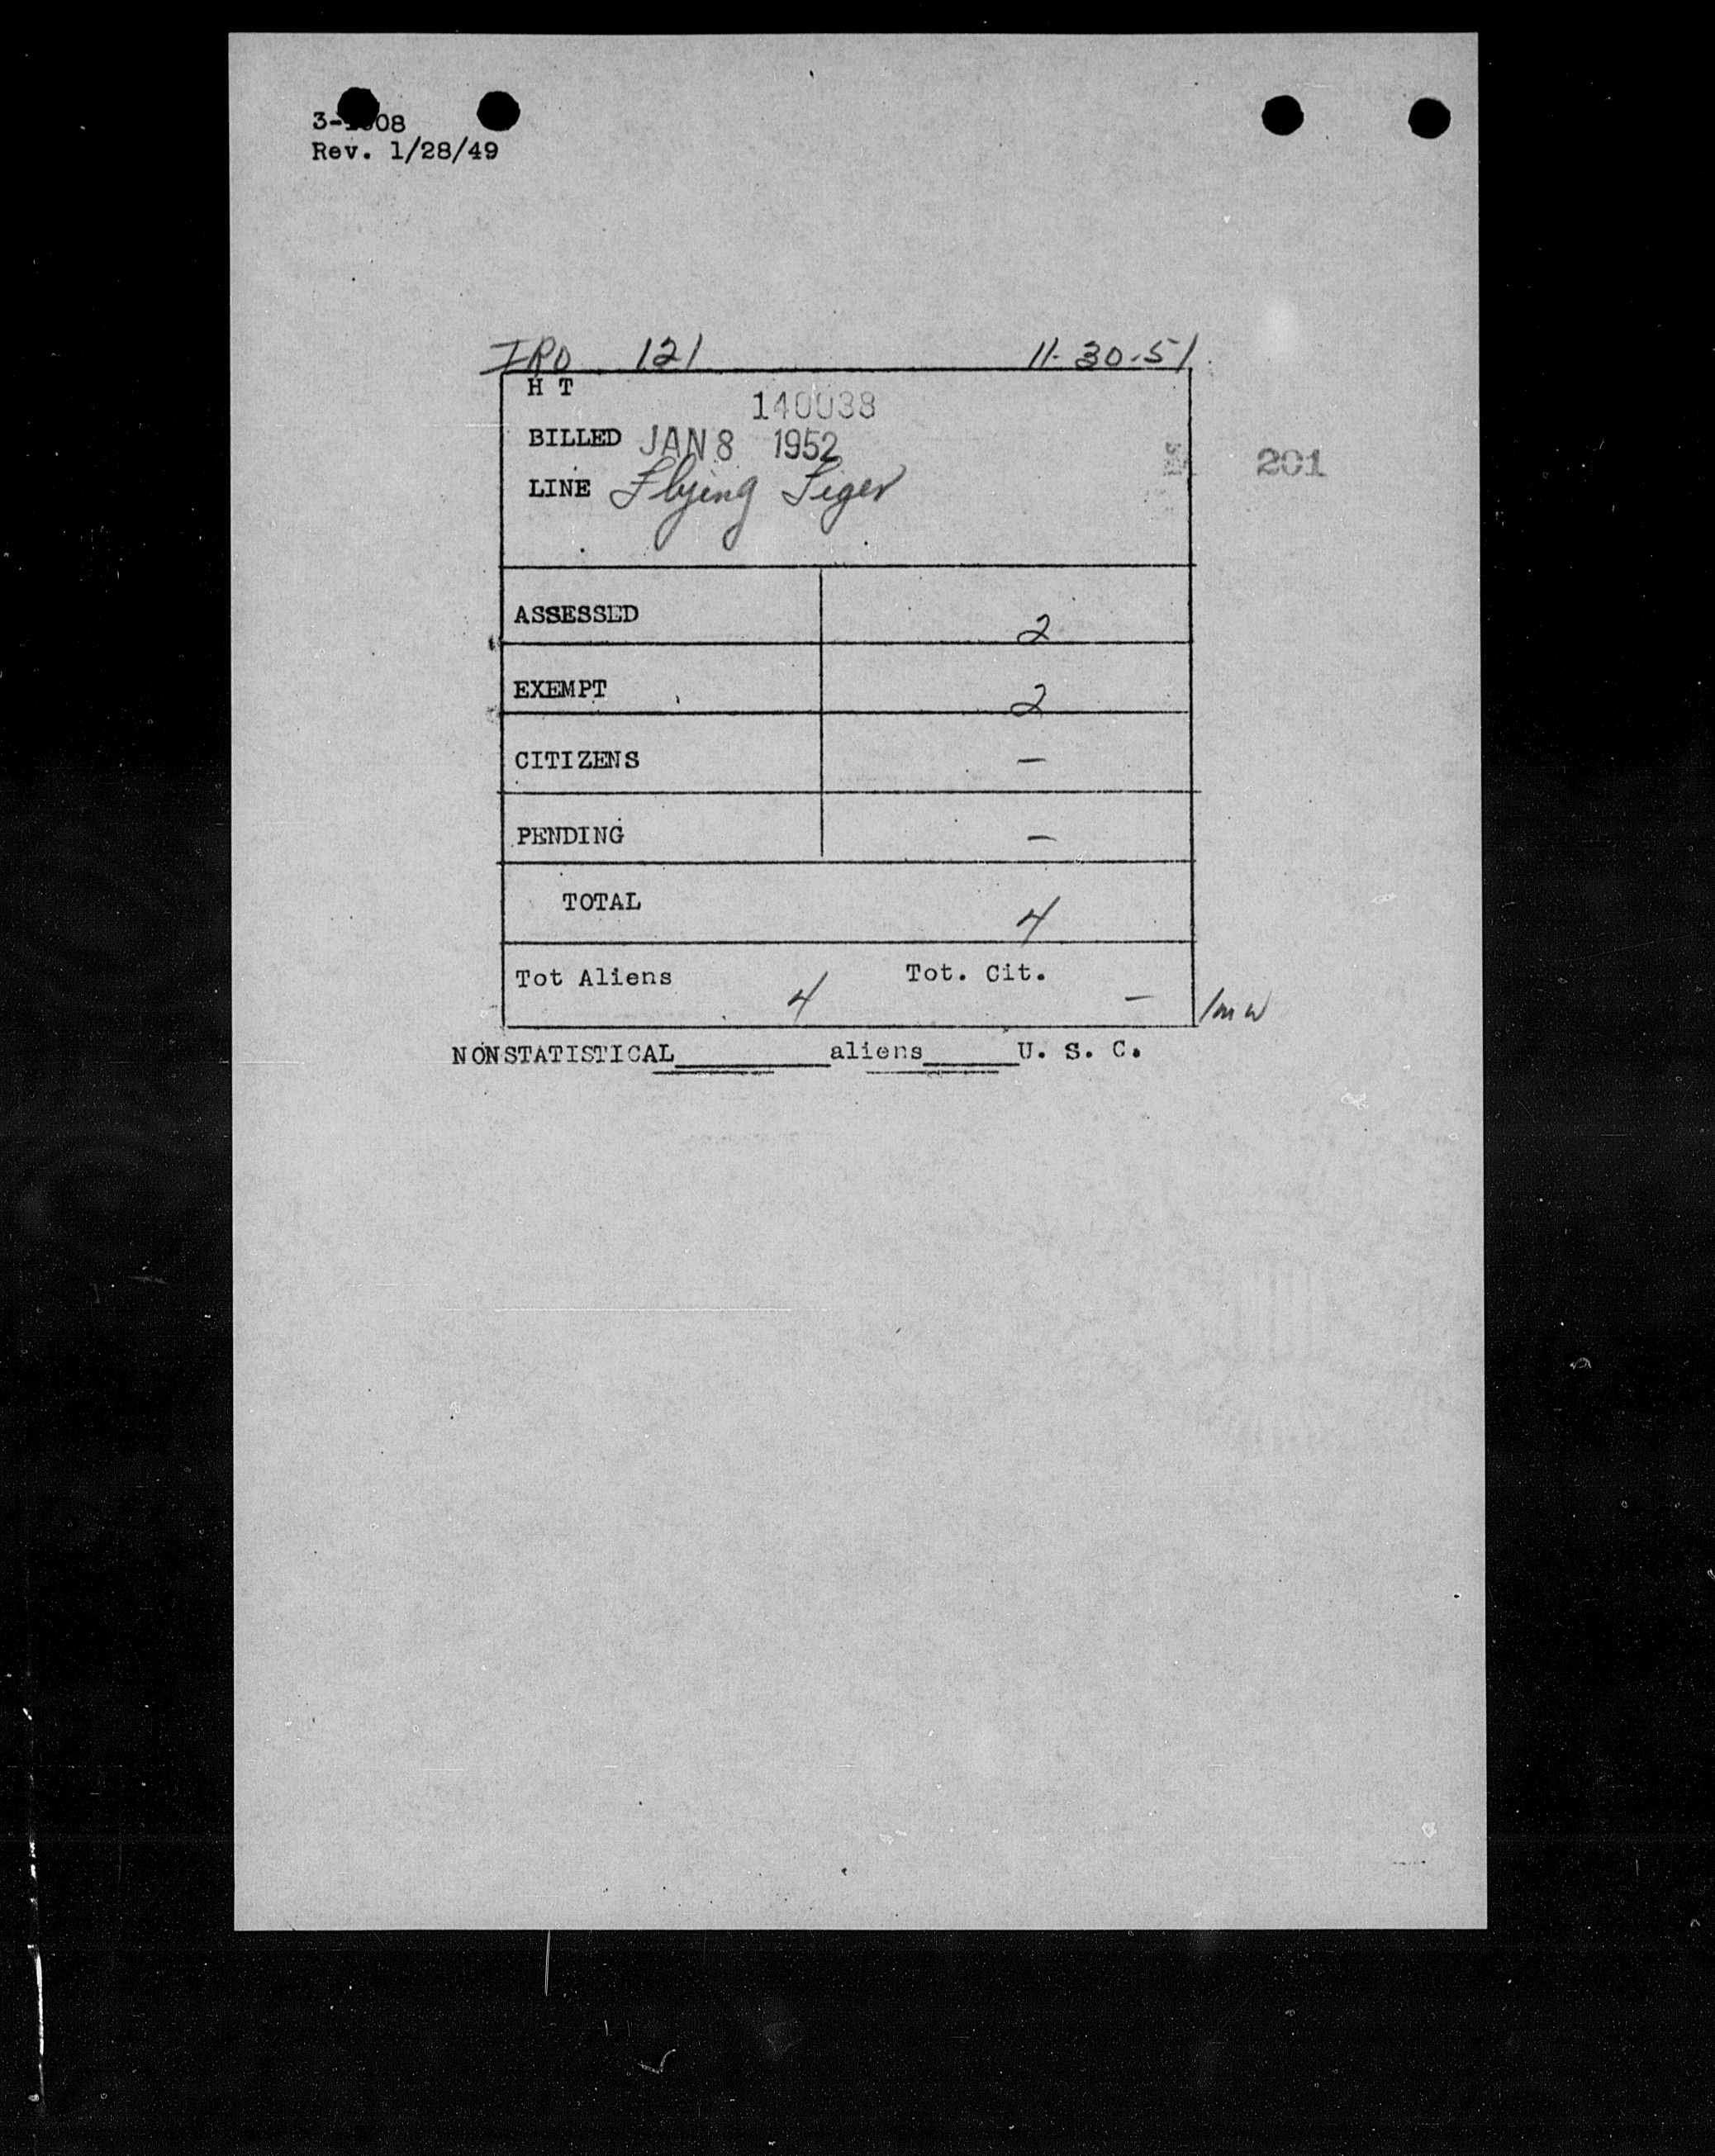 Rev. 1/28/49
IRO 121 11-30-51
H T
140038
BILLED JAN 8 1952
LINE Flying Tiger
201
ASSESSED 2
EXEMPT 2
CITIZENS —
PENDING —
TOTAL 4
Tot Aliens 4 Tot. Cit. —
NONSTATISTICAL________aliens_____U. S. C.